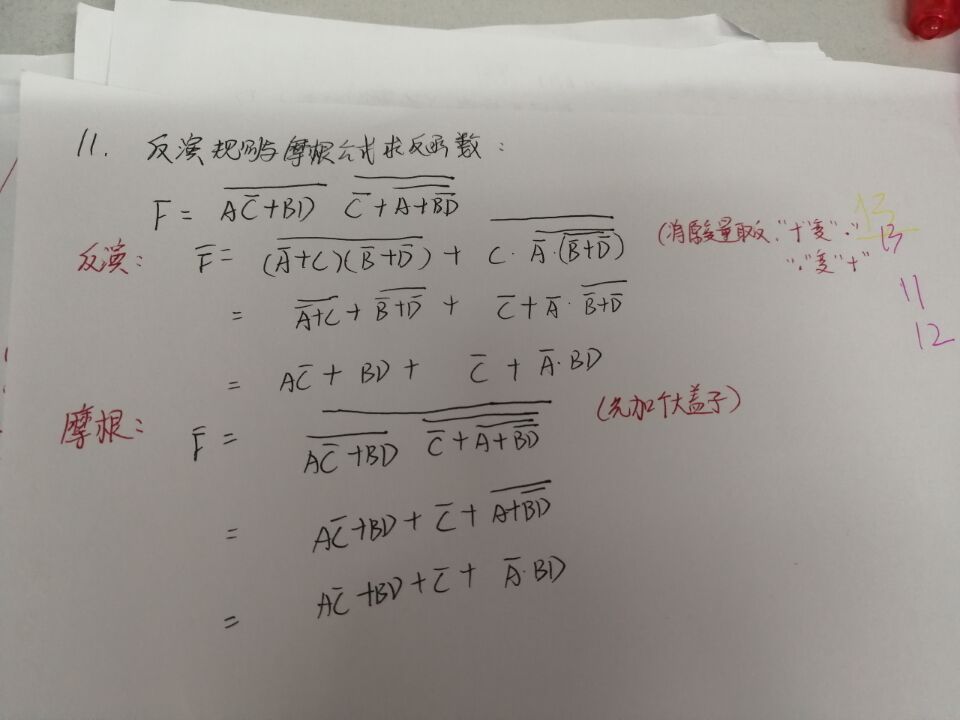 11. 反演规则与摩根公式求反函数:
F = \overline{A\overline{C}+BD} \overline{\overline{\overline{C}+\overline{A+\overline{BD}}}}
反演: \overline{F} = \overline{(\overline{A}+C)(\overline{B}+\overline{D})} + \overline{\overline{C·\overline{A}·\overline{(\overline{B}+\overline{D})}}} (消原变量取反,"+"变"·"
"·"变"+"
= \overline{\overline{A}+C} + \overline{\overline{B}+\overline{D}} + \overline{C} + \overline{A}·\overline{\overline{B}+\overline{D}}
= A\overline{C} + BD + \overline{C} + \overline{A}·BD
摩根: \overline{F} = \overline{\overline{A\overline{C}+BD} \overline{\overline{\overline{C}+\overline{A+\overline{BD}}}}} (先加个大盖子)
= A\overline{C}+BD + \overline{C} + \overline{A+\overline{BD}}
= A\overline{C}+BD+\overline{C}+ \overline{A}·BD
13
13
11
12